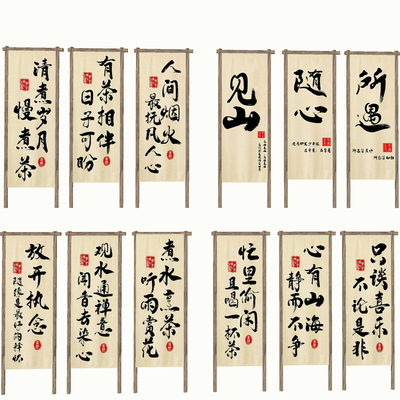 清煮岁月
慢煮茶
有茶相伴
日子可盼
人间烟火
最抚凡人心
见山
随心
所遇
放开执念
随缘是最好的释怀
观水通禅意
闻音去染心
煮水烹茶
听雨赏花
忙里偷闲
且喝一杯茶
心有山海
静而不争
只谈喜乐
不论是非